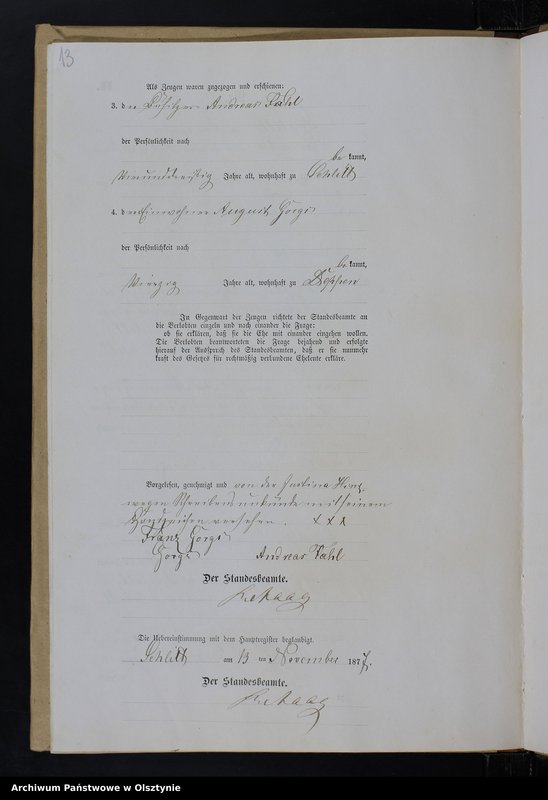 13
Als Zeugen waren zugezogen und erschienen:
3. der Besitzer Andreas Fahl
der Persönlichkeit nach
be kannt,
Jahre alt, wohnhaft zu Schlitt
4. der Einwohner August Görgs
der Persönlichkeit nach
be kannt,
Vierzig Jahre alt, wohnhaft zu Deppen
In Gegenwart der Zeugen richtete der Standesbeamte an
die Verlobten einzeln und nach einander die Frage:
ob sie erklären, daß sie die Ehe mit einander eingehen wollen.
Die Verlobten beantworteten die Frage bejahend und erfolgte
hierauf der Ausspruch des Standesbeamten, daß er sie nunmehr
kraft des Gesetzes für rechtmäßig verbundene Eheleute erkläre.
Vorgelesen, genehmigt und von der Justina
wegen Schreibensunkunde mit seinem
Handzeichen versehen. X X X
Franz Görgs
Görgs Andreas Fahl
Der Standesbeamte.
Die Uebereinstimmung mit dem Hauptregister beglaubigt.
Schlitt am 13 ten November 1877.
Der Standesbeamte.
Archiwum Państwowe w Olsztynie